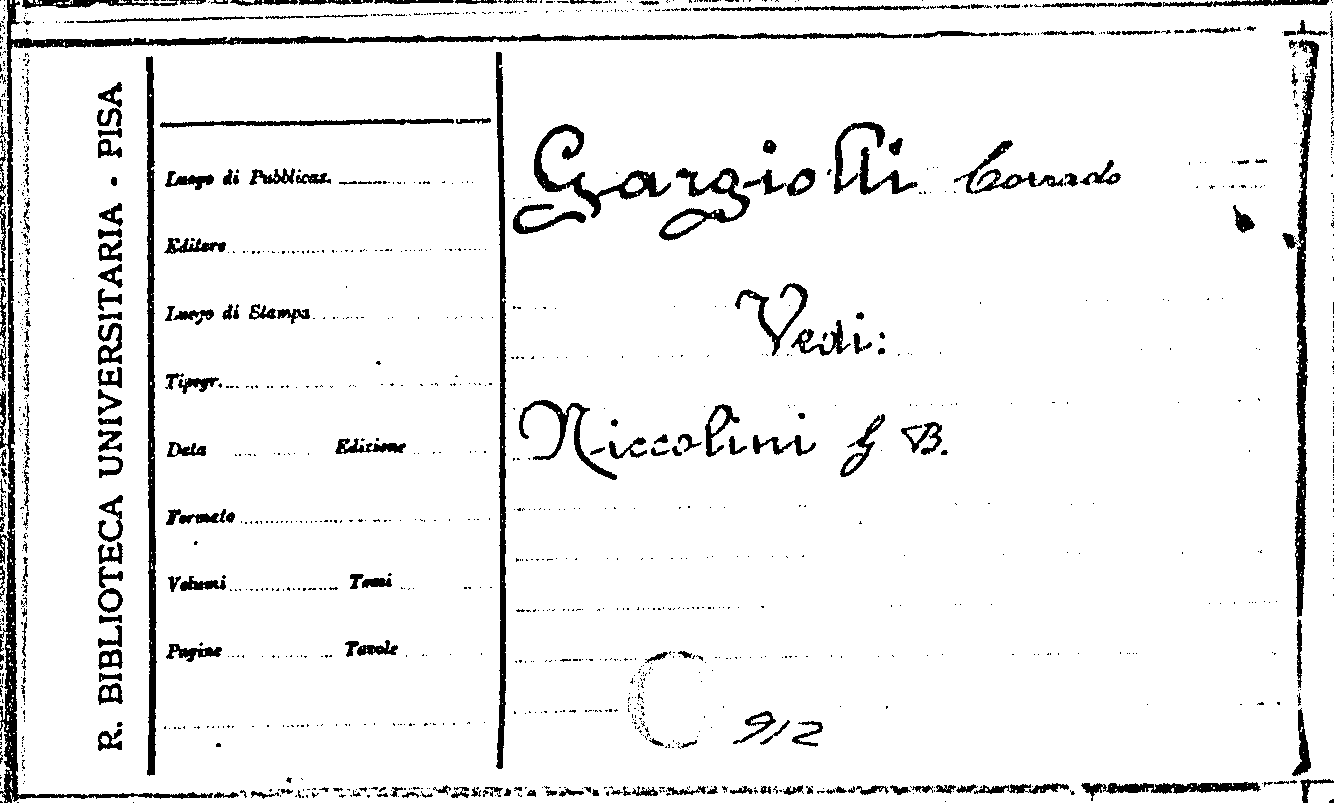 R. BIBLIOTECA UNIVERSITARIA - PISA
Luogo di Pubblicaz.
Editore
Luogo di Stampa
Tipogr.
Data Edizione
Formato
Volumi Tomi
Pagine Tavole
Gargiolli Corrado
Vedi:
Niccolini G B.
C 912